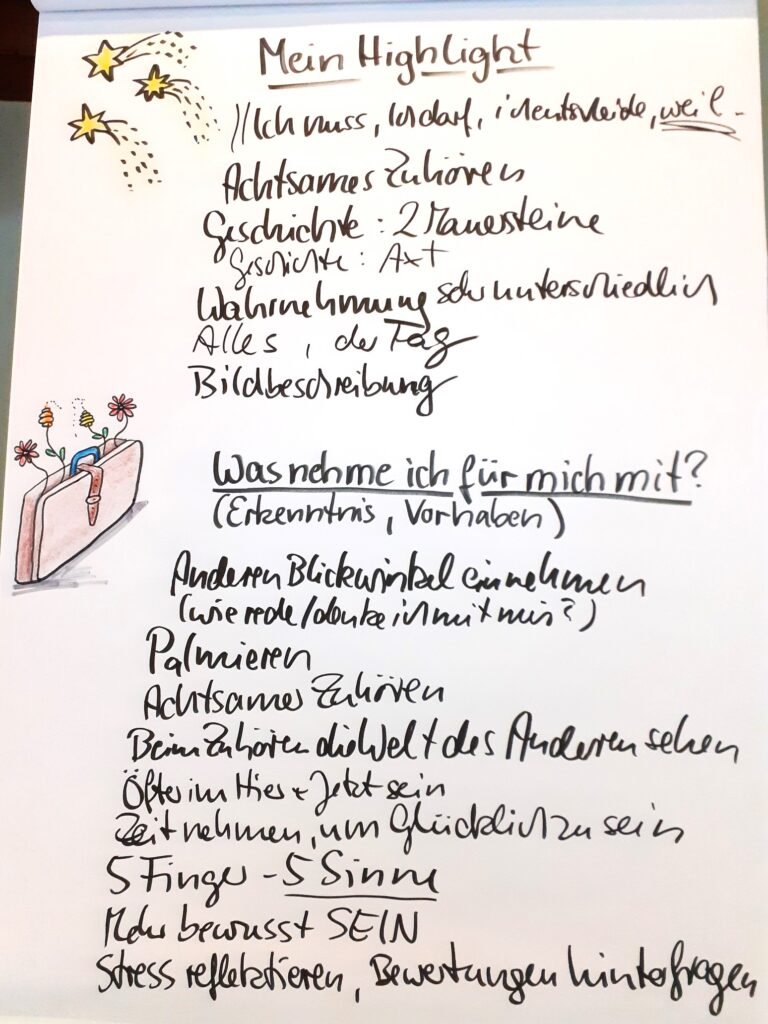 Mein Highlight
"Ich muss, Ich darf, ich entscheide, weil -
Achtsames Zuhören
Geschichte : 2 Mauersteine
Geschichte : Axt
Wahrnehmung sehr unterschiedlich
Alles , der Tag
Bildbeschreibung
Was nehme ich für mich mit?
(Erkenntnis, Vorhaben)
Anderen Blickwinkel einnehmen
(wie rede/denke ich mit mir?)
Palmieren
Achtsames Zuhören
Beim Zuhören die Welt des Anderen sehen
Öfter im Hier + Jetzt sein
Zeit nehmen, um Glücklich zu sein
5 Finger - 5 Sinne
Mehr bewusst SEIN
Stress reflektieren, Bewertungen hinterfragen